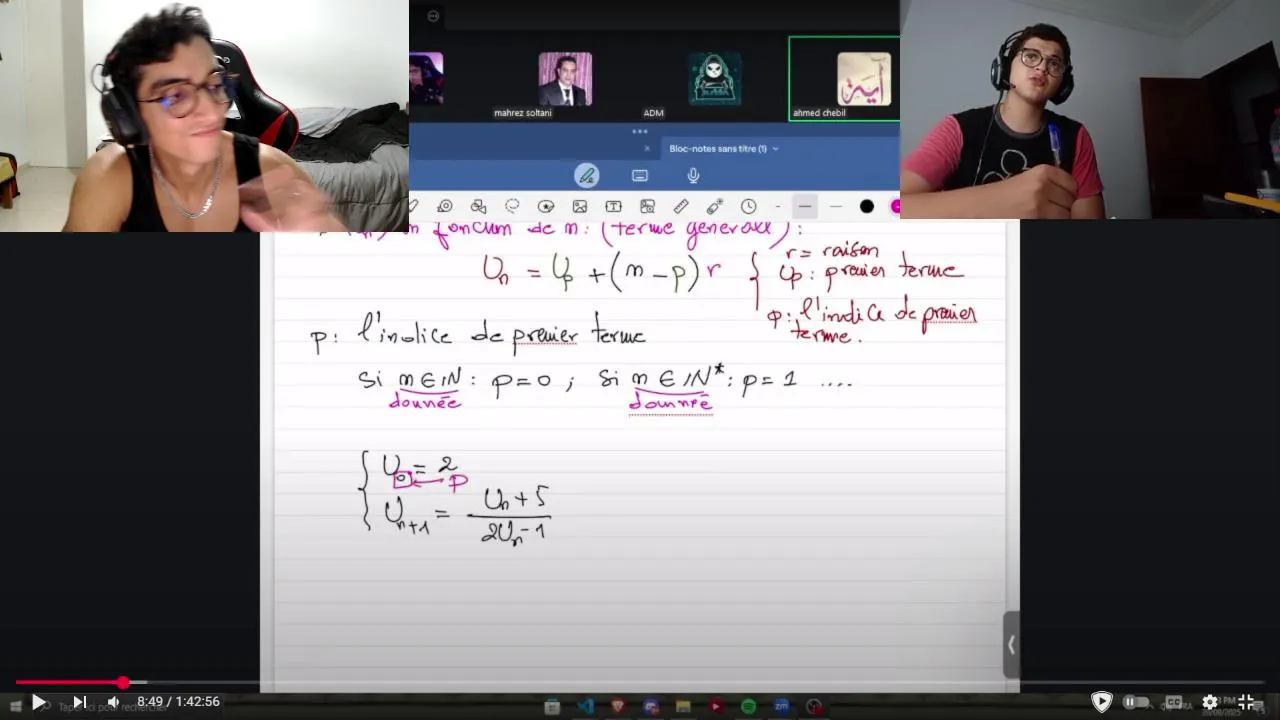 mahrez soltani
ADM
ahmed chebil
Bloc-notes sans titre (1)
en fonction de n : (terme generale) :
Un = Up + (n - p) r
r = raison
Up : premier terme
p : l'indice de premier
terme.
p : l'indice de premier terme
Si n ∈ IN : p = 0 ; Si n ∈ IN* : p = 1 ....
donnée donnée
U0 = 2
p
Un+1 = Un + 5 / 2Un - 1
8:49 / 1:42:56
Taper ici pour rechercher